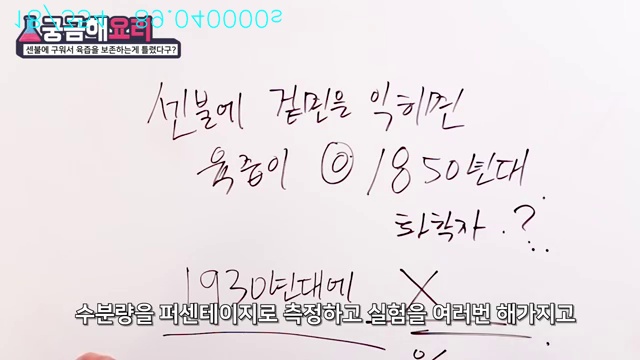 궁금해요리
센불에 구워서 육즙을 보존하는게 틀렸다구?
센불에 겉면을 익히면
육즙이 ◎ 1850년대
화학자.?
1930년대에 X
수분량을 퍼센테이지로 측정하고 실험을 여러번 해가지고
%